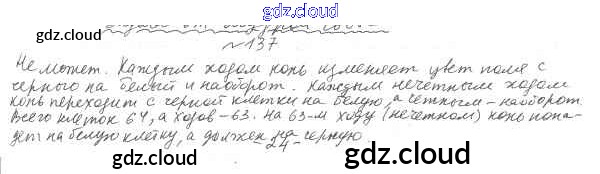 gdz.cloud
gdz.cloud № 137 gdz.cloud
Не может. Каждым ходом конь изменяет цвет поля с
черного на белый и наоборот. Каждым нечетным ходом
конь переходит с черной клетки на белую, а четным – наоборот.
Всего клеток 64, а ходов – 63. На 63-м ходу (нечетном) конь попа-
дет на белую клетку, а должен на черную.
gdz.cloud – 24 – gdz.cloud
gdz.cloud